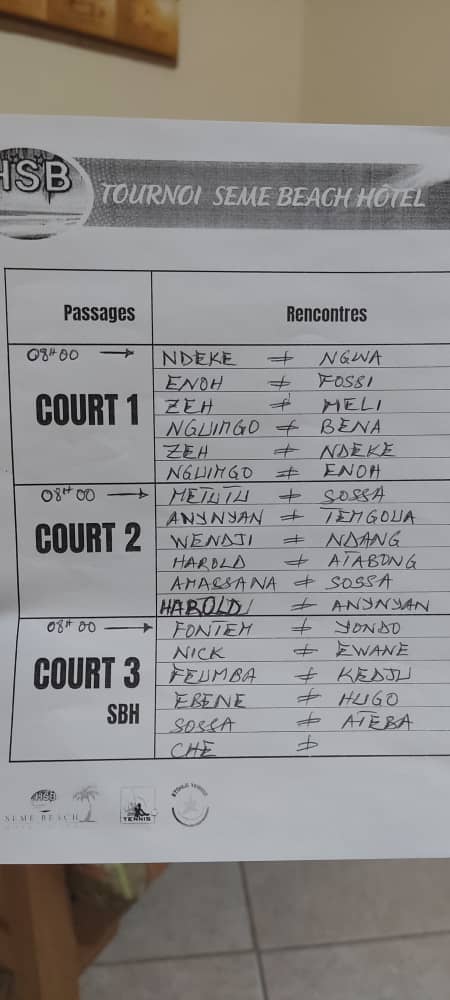 HSB
TOURNOI SEME BEACH HÔTEL
Passages Rencontres
08H00 → NDEKE ≠ NGWA
ENOH ≠ FOSSI
COURT 1
ZEH ≠ MELI
NGUIMGO ≠ BENA
ZEH ≠ NDEKE
NGUIMGO ≠ ENOH
08H00 → METUTU ≠ SOSSA
ANYNYAN ≠ TEMGOUA
COURT 2
WENDJI ≠ NDANG
HAROLD ≠ ATABONG
AMASSANA ≠ SOSSA
HAROLD ≠ ANYNYAN
08H00 → FONTEM ≠ YONDO
NICK ≠ EWANE
COURT 3
FEUMBA ≠ KEDJU
SBH
EBENE ≠ HUGO
SOSSA ≠ ATEBA
CHE ≠
HSB
SEME BEACH
TENNIS